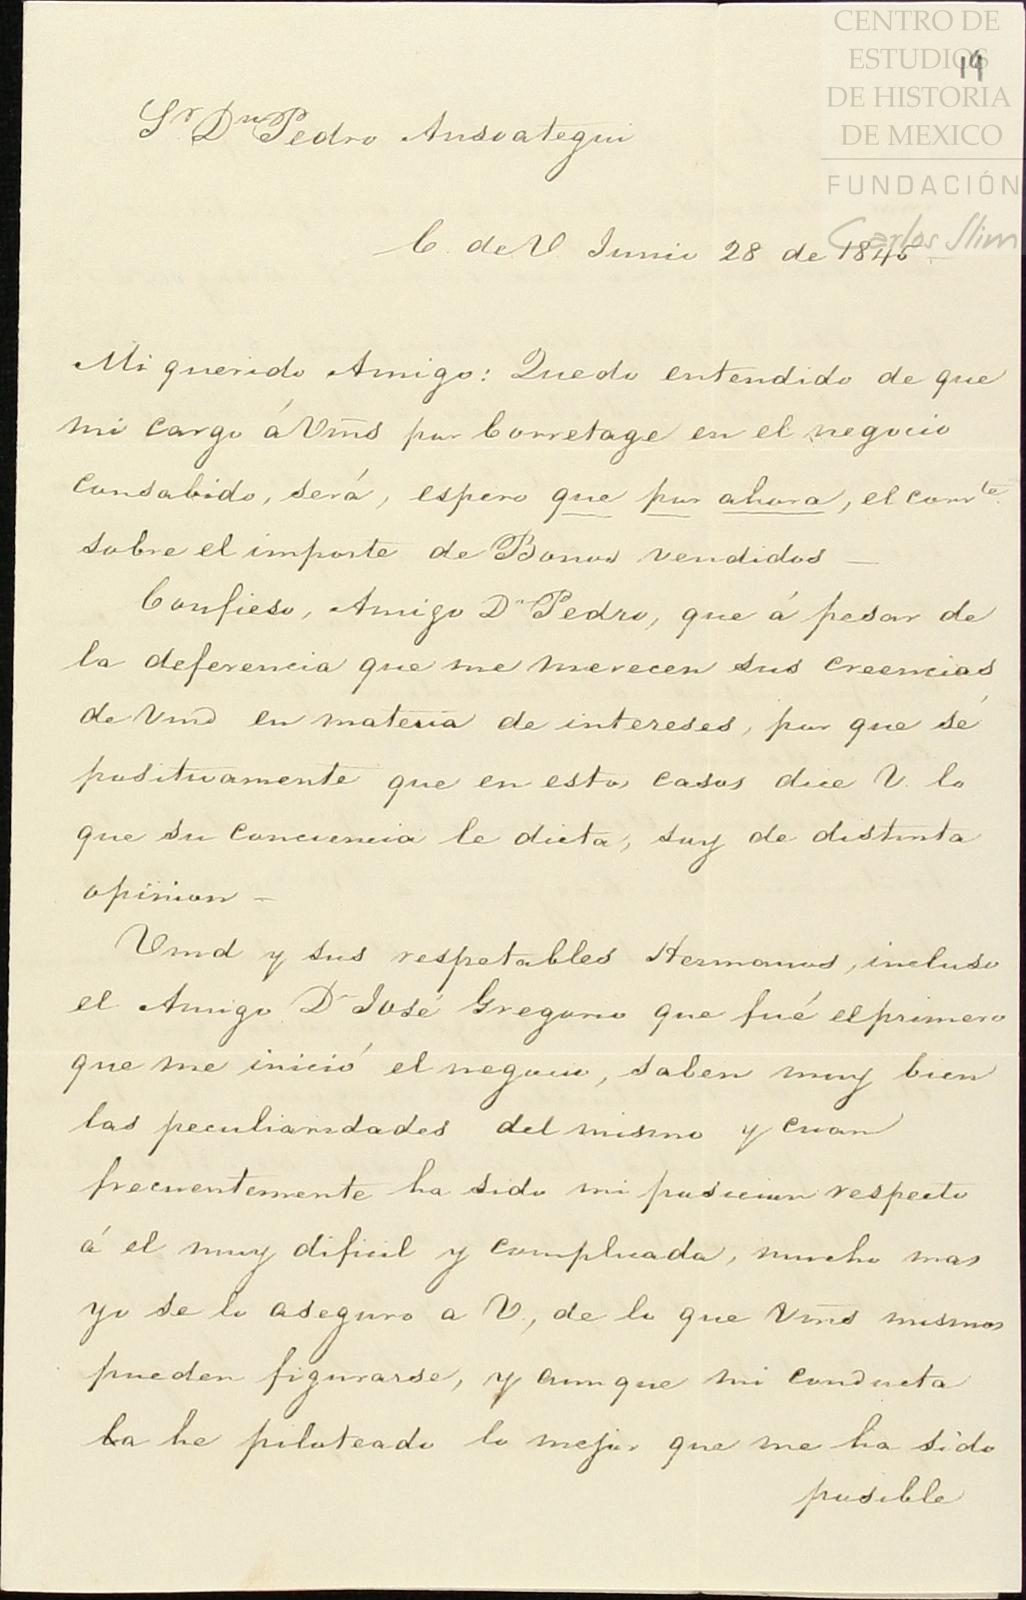 CENTRO DE
ESTUDIOS
DE HISTORIA
DE MEXICO
FUNDACIÓN
Carlos Slim
19
Sr Dn Pedro Ansoategui
C. de V. Junio 28 de 1845
Mi querido Amigo: Quedo entendido de que
mi cargo á Vms por Corretage en el negocio
consabido, será, espero que por ahora, el corrte
sobre el importe de Bonos vendidos —
Confieso, Amigo Dn Pedro, que á pesar de
la deferencia que me merecen sus creencias
de Vmd en materia de intereses, por que sé
positivamente que en estos casos dice V. lo
que su conciencia le dicta, soy de distinta
opinion —
Vmd y sus respetables Hermanos, incluso
el Amigo Dn José Gregorio que fué el primero
que me inició el negocio, saben muy bien
las peculiaridades del mismo y cuan
frecuentemente ha sido mi posicion respecto
á el muy dificil y complicada, mucho mas
yo se lo aseguro a V., de lo que Vms mismos
pueden figurarse, y aunque mi conducta
la he piloteado lo mejor que me ha sido
posible